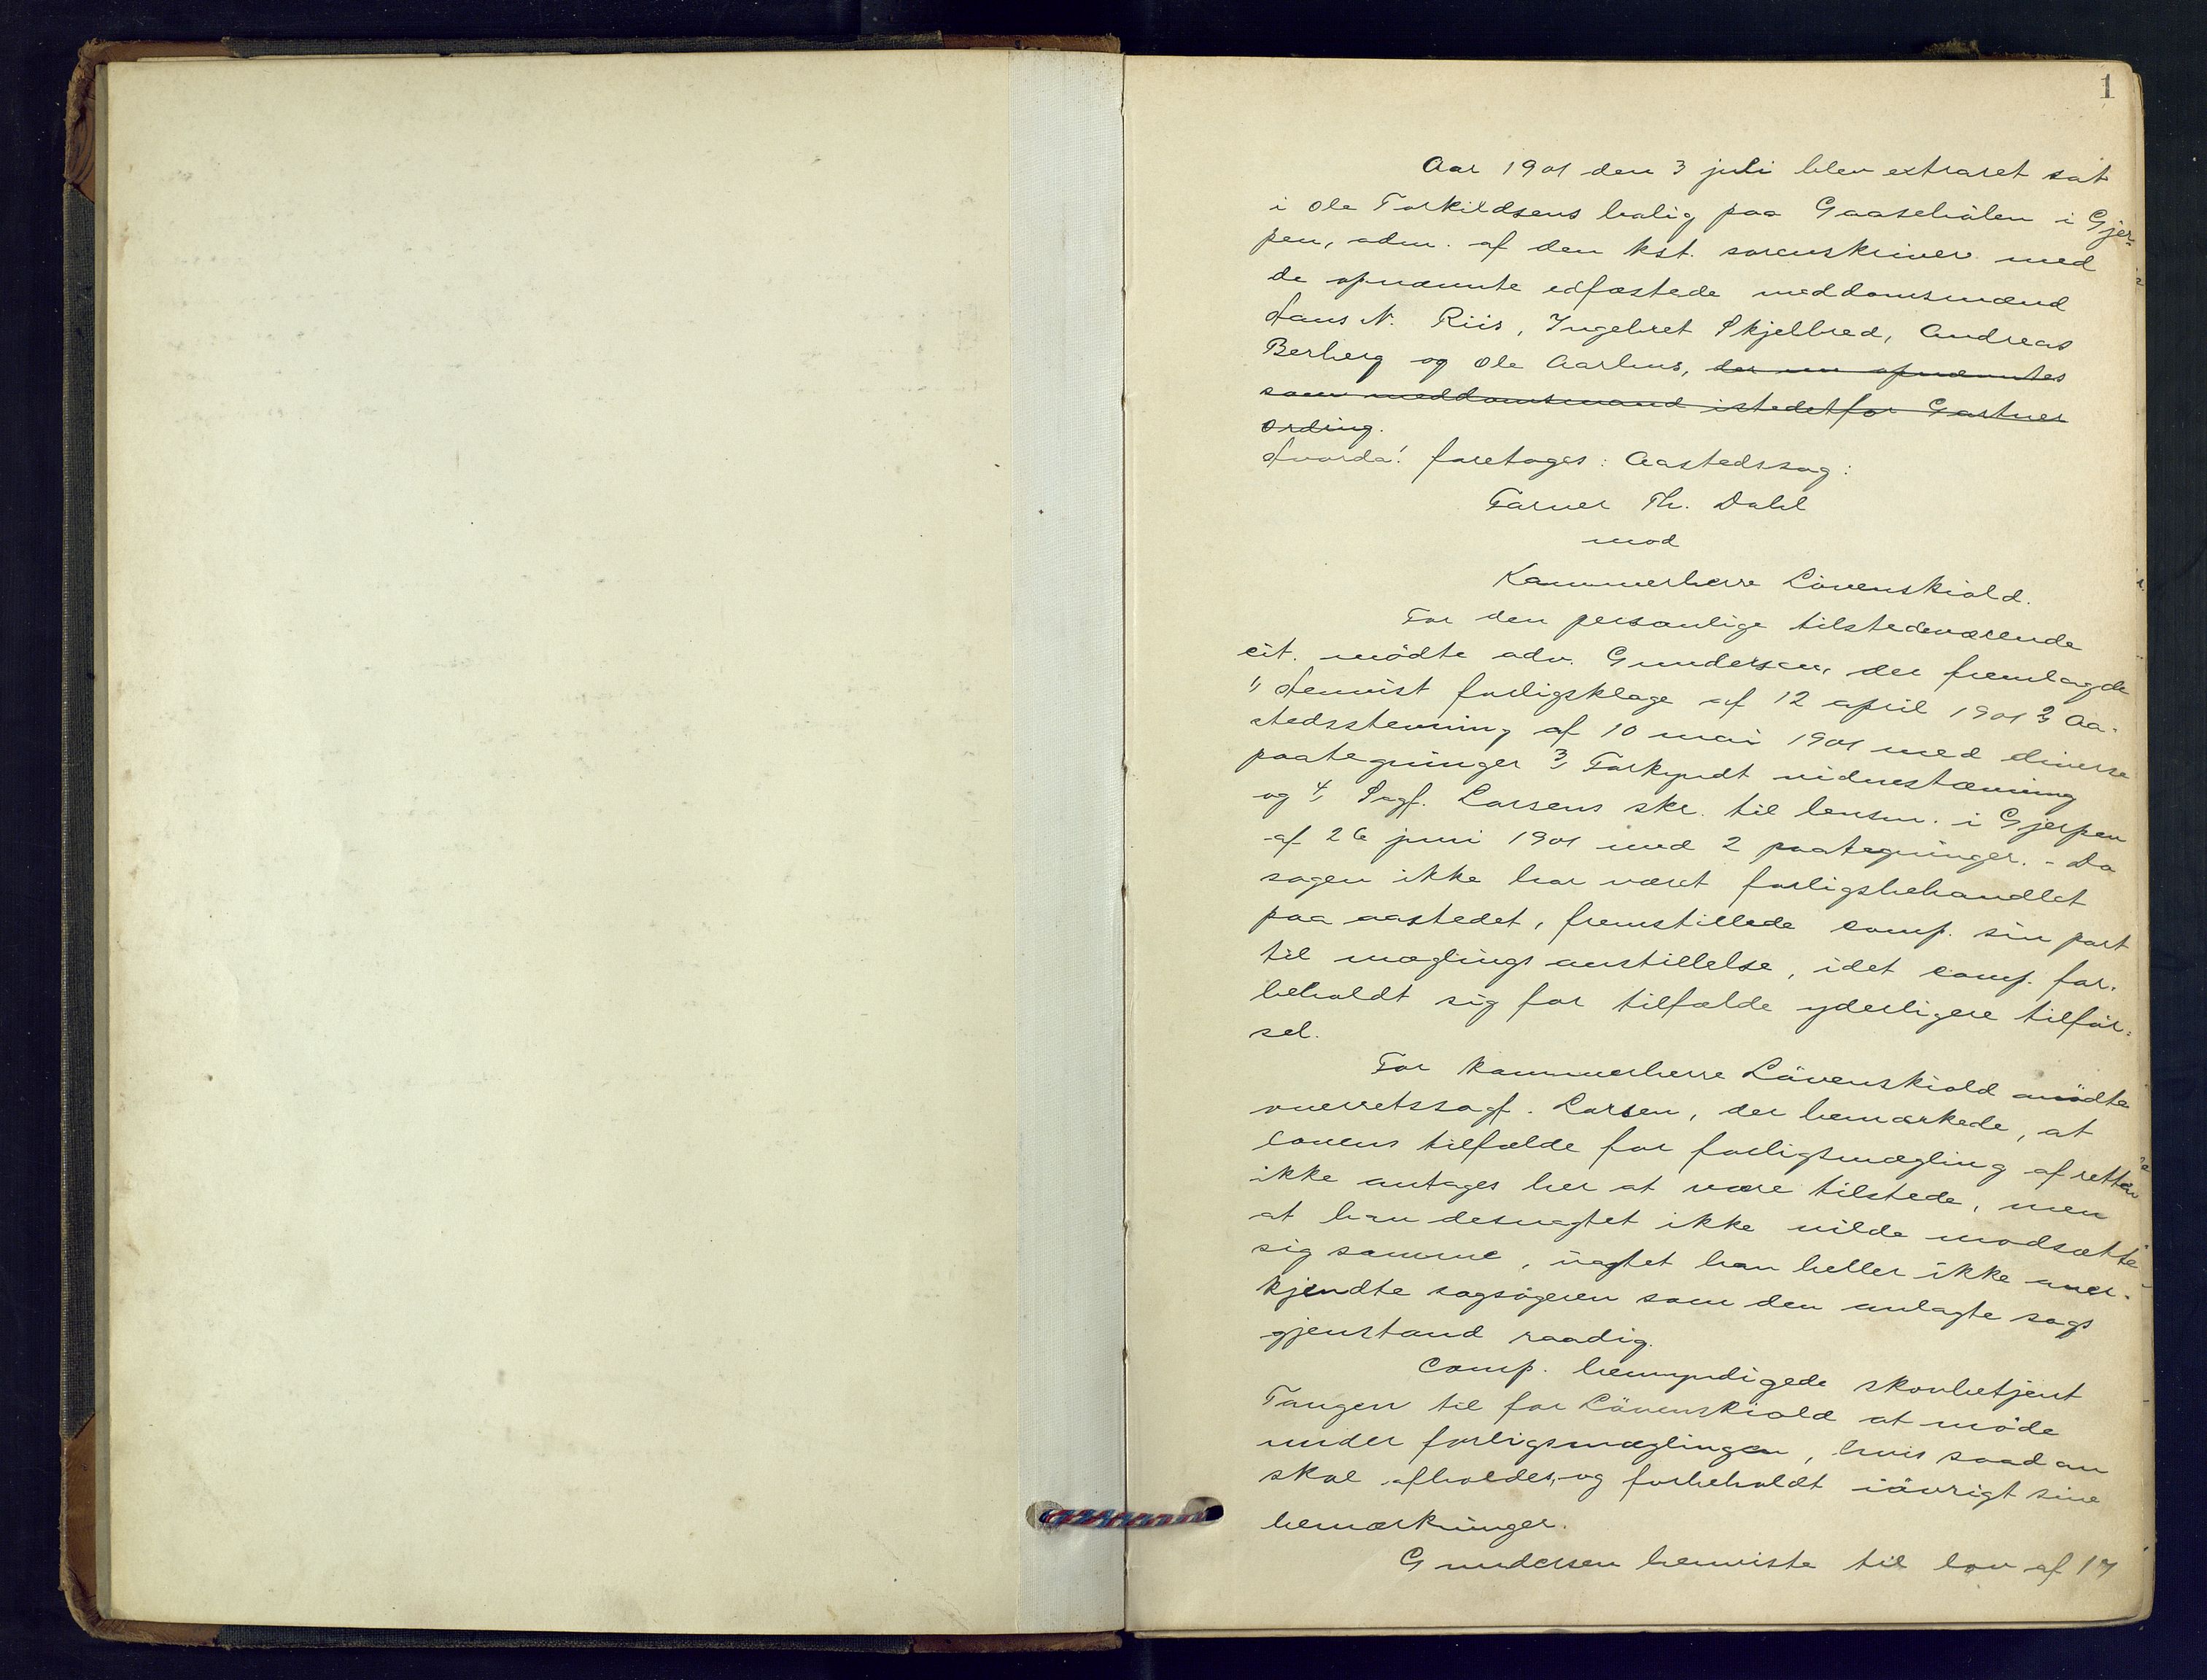 1
Aar 1901 den 3 juli blev extraret sat
i Ole Torkildsens bolig paa Gaasehölen i Gjer-
pen, adm. af den kst. sorenskriver med
de opnævnte edfæstede meddomsmænd
Hans N. Riis, Ingebret Skjelbred, Andreas
Berberg og Ole Aarhus, der er opnævntes
som meddomsmand istedetfor Gartner
Ording.
Hvorda! foretoges: Aastedssag:
Farver Th. Dahl
mod
Kammerherre Lövenskiold.
For den personlige tilstedeværende
cit. mödte adv. Gundersen, der fremlagde
1, Henvist forligsklage af 12 april 1901 2, Aa-
stedsstevning af 10 mai 1901 med diverse
paategninger 3, Forkyndt vidnestævning
og 4, Sagf. Larsens skr. til lensm. i Gjerpen
af 26 juni 1901 med 2 paategninger. - Da
sagen ikke har været forligsbehandlet
paa aastedet, fremstillede comp. sin part
til mæglings anstillelse, idet comp. for-
beholdt sig for tilfælde yderligere tilför-
sel.
For Kammerherre Lövenskiold mödte
overretssagf. Larsen, der bemærkede, at
lovens tilfælde for forligsmægling af retten
ikke antages her at være tilstede, men
at han desuagtet ikke vilde modsætte
sig samme, uagtet han heller ikke aner-
kjendte sagsögeren som den anlagte sags
gjenstand raadig.
Comp. bemyndigede skovbetjent
Tangen til for Lövenskiold at möde
under forligsmæglingen, hvis saadan
skal afholdes, og forbeholdt iövrigt sine
bemærkninger.
Gundersen henviste til lov af 17